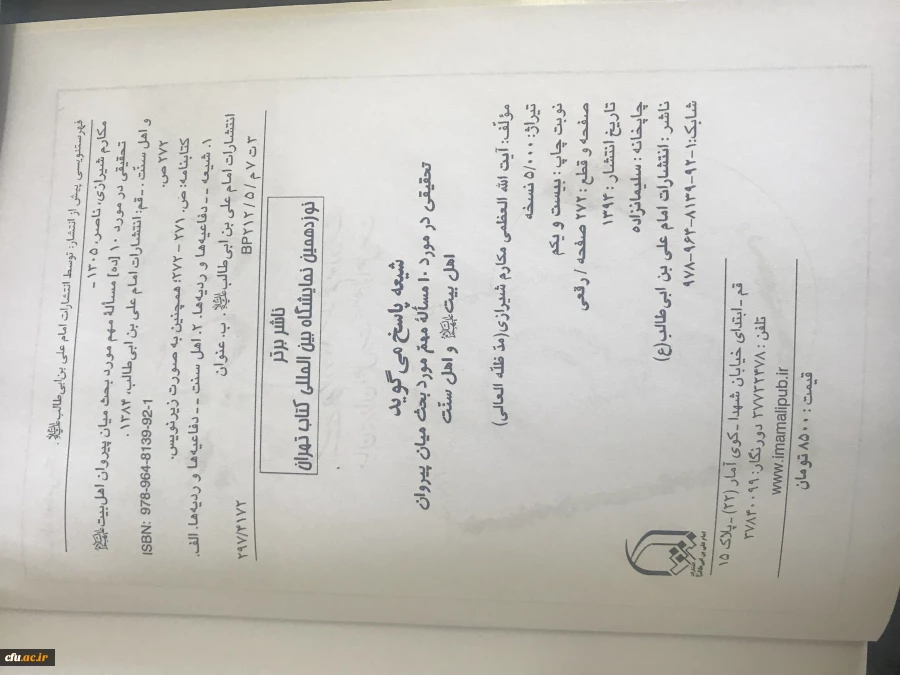 فهرستنویسی پیش از انتشار: توسط انتشارات امام علی بن ابی‌طالب علیه السلام.
مکارم شیرازی، ناصر، ۱۳۰۵ -
تحقیقی در مورد ۱۰ [ده] مسألهٔ مهم مورد بحث میان پیروان اهل‌بیت علیهم السلام
و اهل سنّت. ـ قم: انتشارات امام علی بن ابی‌طالب، ۱۳۸۴.
۲۷۲ ص.
ISBN: 978-964-8139-92-1
کتابنامه: ص. ۲۷۱ - ۲۷۲؛ همچنین به صورت زیرنویس.
۱. شیعه -- دفاعیه‌ها و ردیه‌ها. ۲. اهل سنت -- دفاعیه‌ها و ردیه‌ها. الف.
انتشارات امام علی بن ابی‌طالب علیه السلام. ب. عنوان
۳ت ۷م / ۵ / BP۲۱۲
۲۹۷/۴۱۷۲
ناشر برتر
نوزدهمین نمایشگاه بین المللی کتاب تهران
شیعه پاسخ می‌گوید
تحقیقی در مورد ۱۰ مسألهٔ مهمّ مورد بحث میان پیروان
اهل بیت علیهم السلام و اهل سنّت
مؤلّف: آیت الله العظمی مکارم شیرازی (مدّ ظلّه العالی)
تیراژ: ۵/۰۰۰ نسخه
نوبت چاپ: بیست و یکم
صفحه و قطع: ۲۷۲ صفحه / رقعی
تاریخ انتشار: ۱۳۹۴
چاپخانه: سلیمانزاده
ناشر: انتشارات امام علی بن ابی‌طالب(ع)
شابک: ۱-۹۲-۸۱۳۹-۹۶۴-۹۷۸
قم - ابتدای خیابان شهدا - کوی آمار (۲۲) - پلاک ۱۵
تلفن: ۳۷۷۳۲۴۷۸ دورنگار: ۳۷۸۴۰۰۹۹
www.imamalipub.ir
قیمت: ۸۵۰۰ تومان
cfu.ac.ir